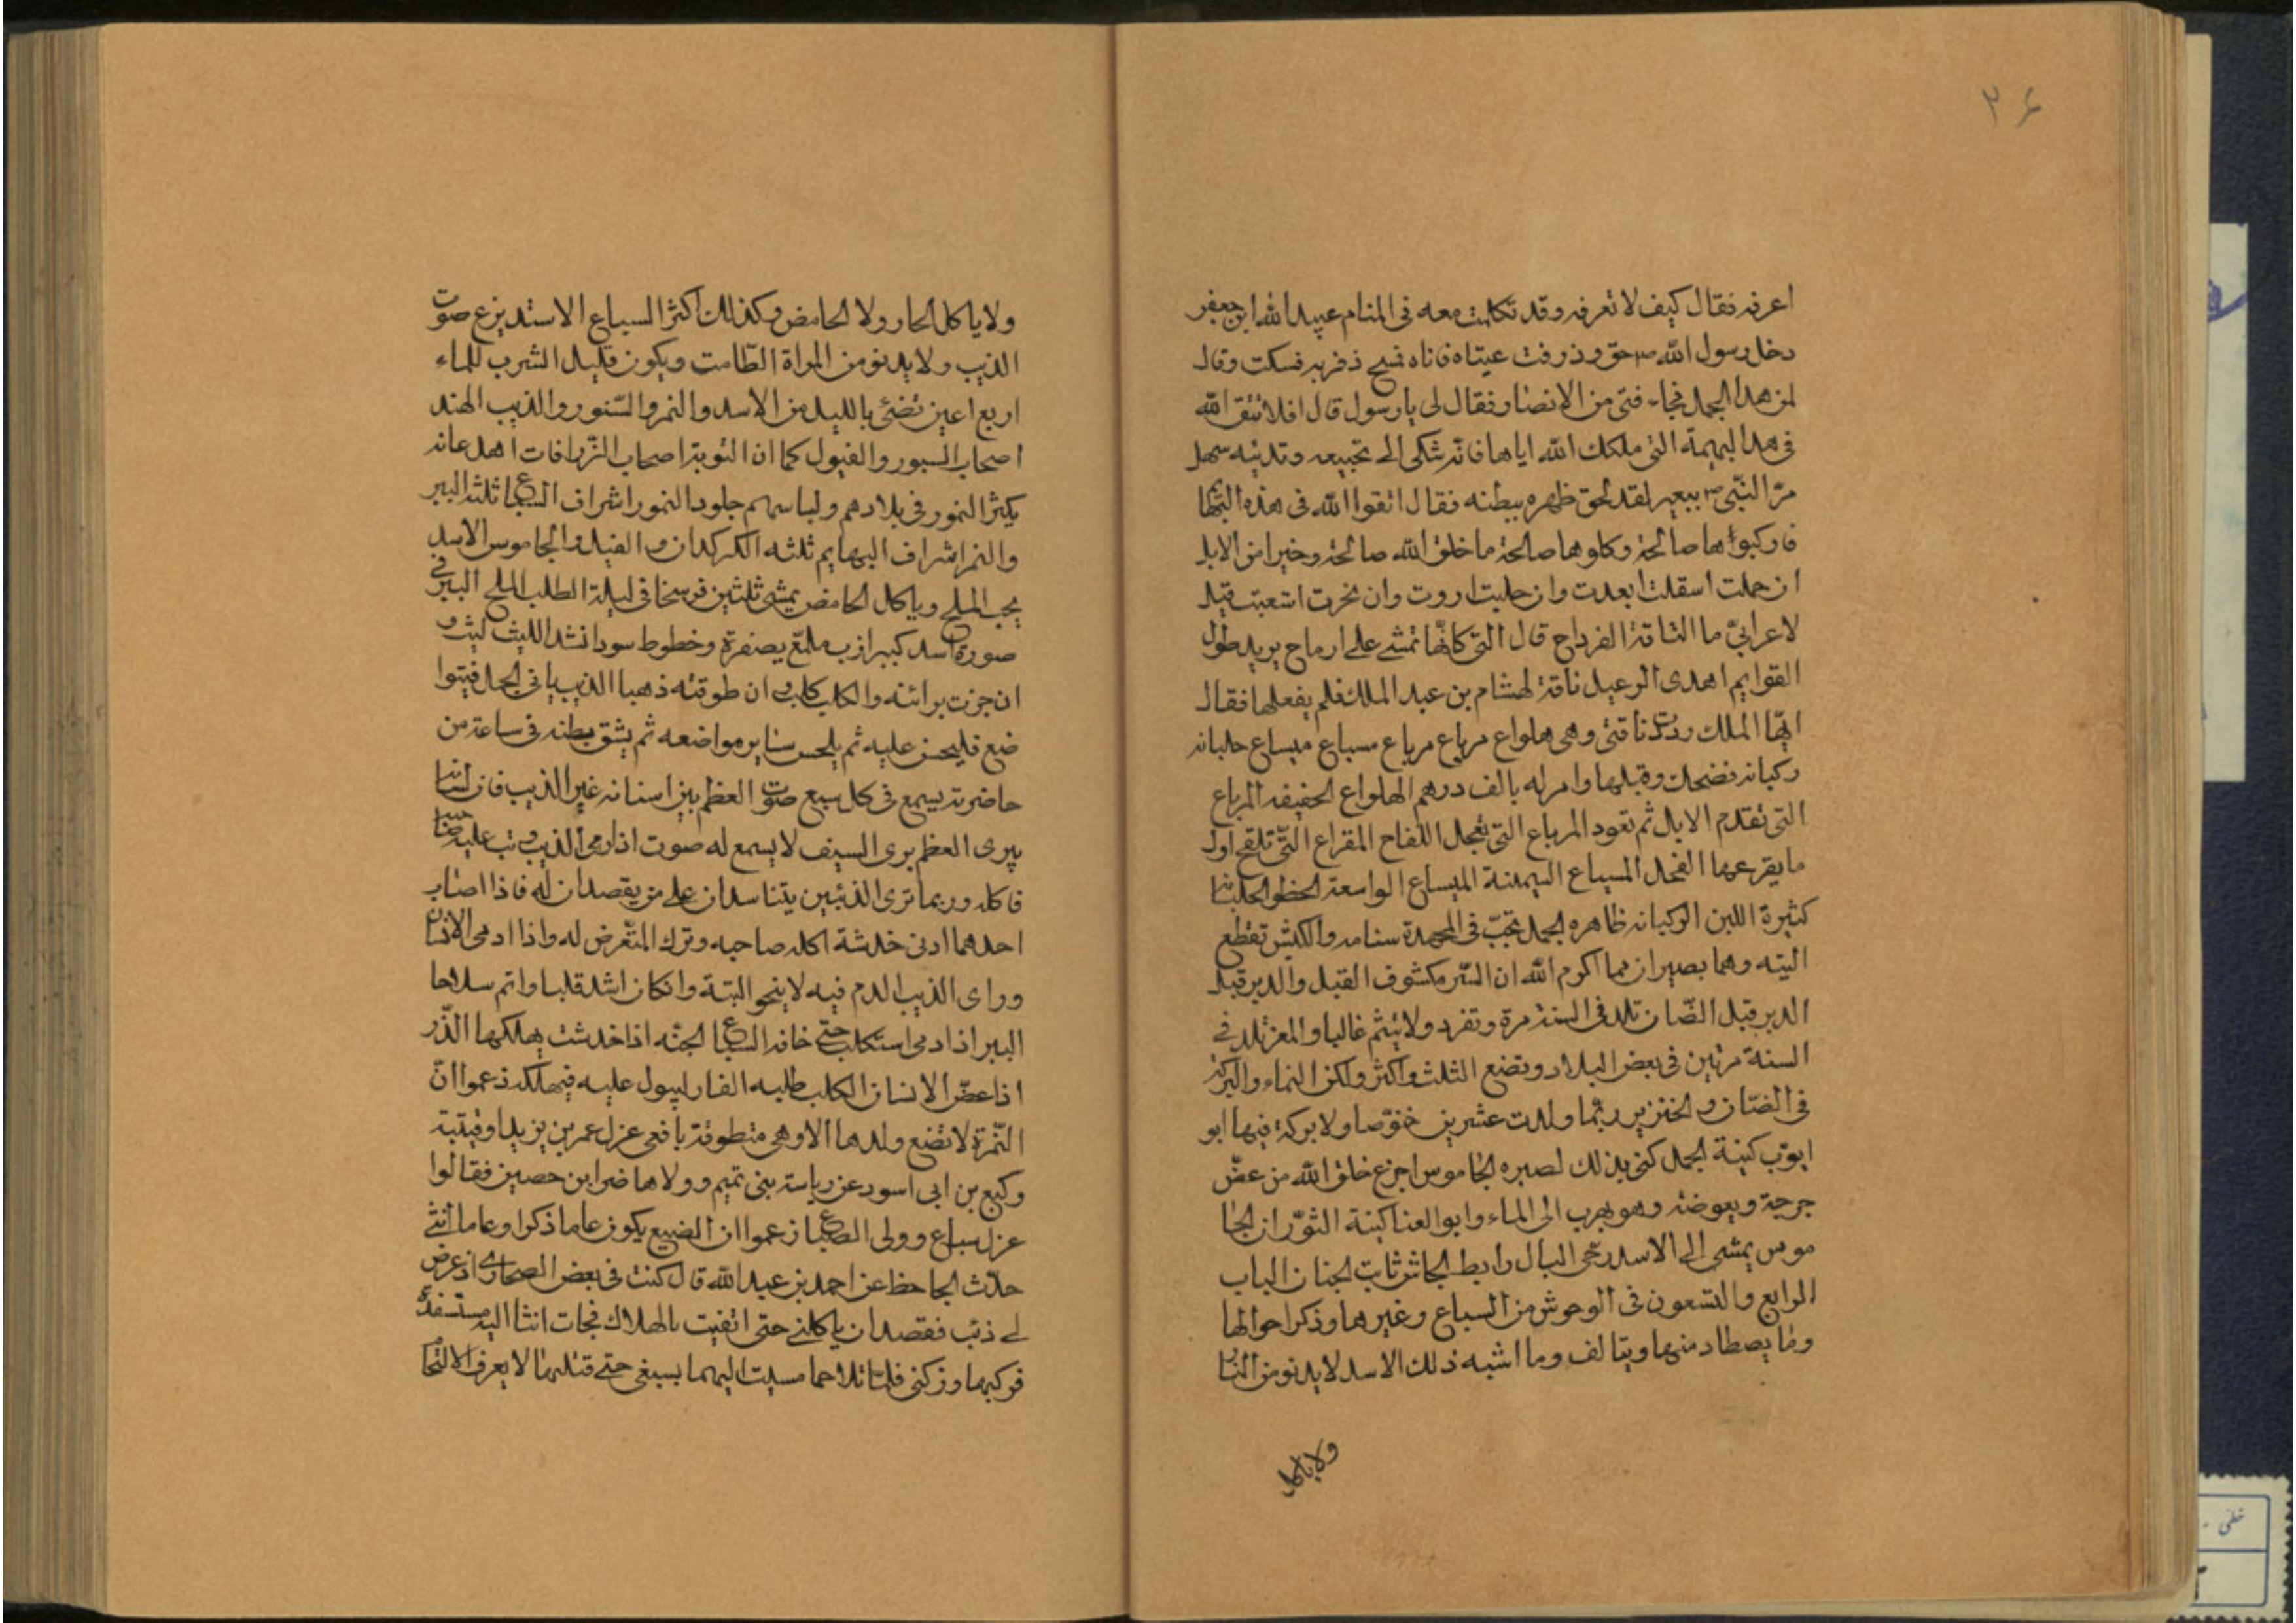 ۳۶
اعرفه فقال كيف لا تعرفه وقد تكلمت معه فى المنام عبيد الله ابن جعفر
دخل رسول الله ص وذرفت عيناه فاتاه فمسح ذفريه فسكت وقال
لمن هذا الجمل فجاء فتى من الانصار فقال لى يا رسول قال افلا تتق الله
فى هذا البهيمة التى ملكك الله اياها فانه شكى الى تجيعه وتدئبه سهل
مر النبى ص ببعير لقد لحق ظهره ببطنه فقال اتقوا الله فى هذه البهما
فاركبوا ها صالحة وكلوها صالحة ما خلق الله صالحة وخيرا من الابل
ان حملت اسقلت ابعدت وان حلبت اروت وان نحرت اشعبت قيل
لاعرابى ما الناقة الفرداح قال التى كانها تمشى على ارماح يريد طول
القوايم اهدى الرعيل ناقة لهشام بن عبد الملك فلم يفعلها فقال
ايها الملك رددت ناقتى وهى هلواع مرباع مرباع مسباع ميساع حلبانه
ركبانه فضحك وقبلها وامر له بالف درهم الهلواع الخفيفه المرباع
التى تقدم الابل ثم تعود المرباع التى تعجل اللقاح المقراع التى تلقح اول
ما يقرعها الفحل المسباع السمنة الميساع الواسعة الخطو الحلبانا
كثيرة اللبن الركبانه ظاهره الجمل تجب فى المجمدة سنامه والكبش تقطع
اليته وهما بصيران مما اكرم الله ان الستر مكشوف القبل والدبر قبل
الدبر قبل الضان تلد فى السنة مرة وتفرد ولا تتئم غالبا والمعز تلد فى
السنة مرتين فى بعض البلاد وتضع الثلث واكثر ولكن النماء والبركة
فى الضان والخنزير ربما ولدت عشرين خنوصا ولا بركة فيها ابو
ايوب كنية الجمل كنى بذلك لصبره الجاموس اجزع خلق الله من عض
جرجة وبعوضة وهو يهرب الى الماء وابو العنا كنية الثور ان الجا
موس يمشى الى الاسد رخى البال رابط الجاش ثابت الجنان الباب
الرابع والتسعون فى الوحوش من السباع وغيرهما وذكر احوالها
وما يصطاد منها ويتالف وما اشبه ذلك الاسد لا يدنو من النار
ولا ياكل
ولا ياكل الحار ولا الحامض وكذلك اكثر السباع الاسد يفزع صوت
الذيب ولا يدنو من المراة الطامت ويكون قليل الشرب للماء
اربع اعين تضئ بالليل من الاسد والنمر والسنور والذيب الهند
اصحاب السبور والفيول كما ان النوبة اصحاب الزرافات اهد عانه
يكثر النمور فى بلادهم ولباسهم جلود النمور اشراف السباع ثلثه الببر
والنمر اشراف البهايم ثلثه الكركدان والفيل والجاموس الاسد
يحب الملح وياكل الحامض يمشى ثلثين فرسخا فى ليلة الطلب الملح الببر فى
صورة اسد كبير ازب ملمع بصفرة وخطوط سود انشد الليث ليث و
ان جزت براثنه والكلب كلب وان طوقته ذهبا الذيب ياتى الجمل فيتوا
ضع فليحس عليه ثم يلحس ساير مواضعه ثم يشق بطنه فى ساعة من
حاضرته يسمع فى كل سبع صوت العظم بين اسنانه غير الذيب فان اسنانه
يبرى العظم برى السيف لا يسمع له صوت اذا رمى الذيب وثب عليه صاحبه
فاكله وربما ترى الذئبين يتناسدان على من يقصدان له فاذا اصاب
احدهما ادنى خدشة اكله صاحبه وترك المتعرض له واذا ادمى الانسان
وراى الذيب الدم فيه لا ينجو البتة وانكان اشد قلبا واتم سلاحا
الببر اذا دمى استكلب حتى خافه السباع الجثه اذا خدشت يهلكها الذر
اذا عض الانسان الكلب طلبه الفار ليبول عليه فيهلكه زعموا ان
النمرة لا تضع ولدها الا وهى متطوقة بافعى عزل عمر بن يزيد او قيتبة
وكيع بن ابى اسود عن رياسة بنى تميم وولاها ضرا ابن حصين فقالوا
عزل سباع وولى الضباع زعموا ان الضبع يكون عاما ذكرا وعاما انثى
حدث الجاحظ عن احمد بن عبد الله قال كنت فى بعض الصحارى اذ عرض
لى ذئب فقصد ان ياكلنى حتى اتقيت بالهلاك فجات انثا اليه مستسفدة
فركبها وزكنى فلما تلاحما مسيت اليهما بسيفى حتى قتلتهما لا يعرف الالتحام